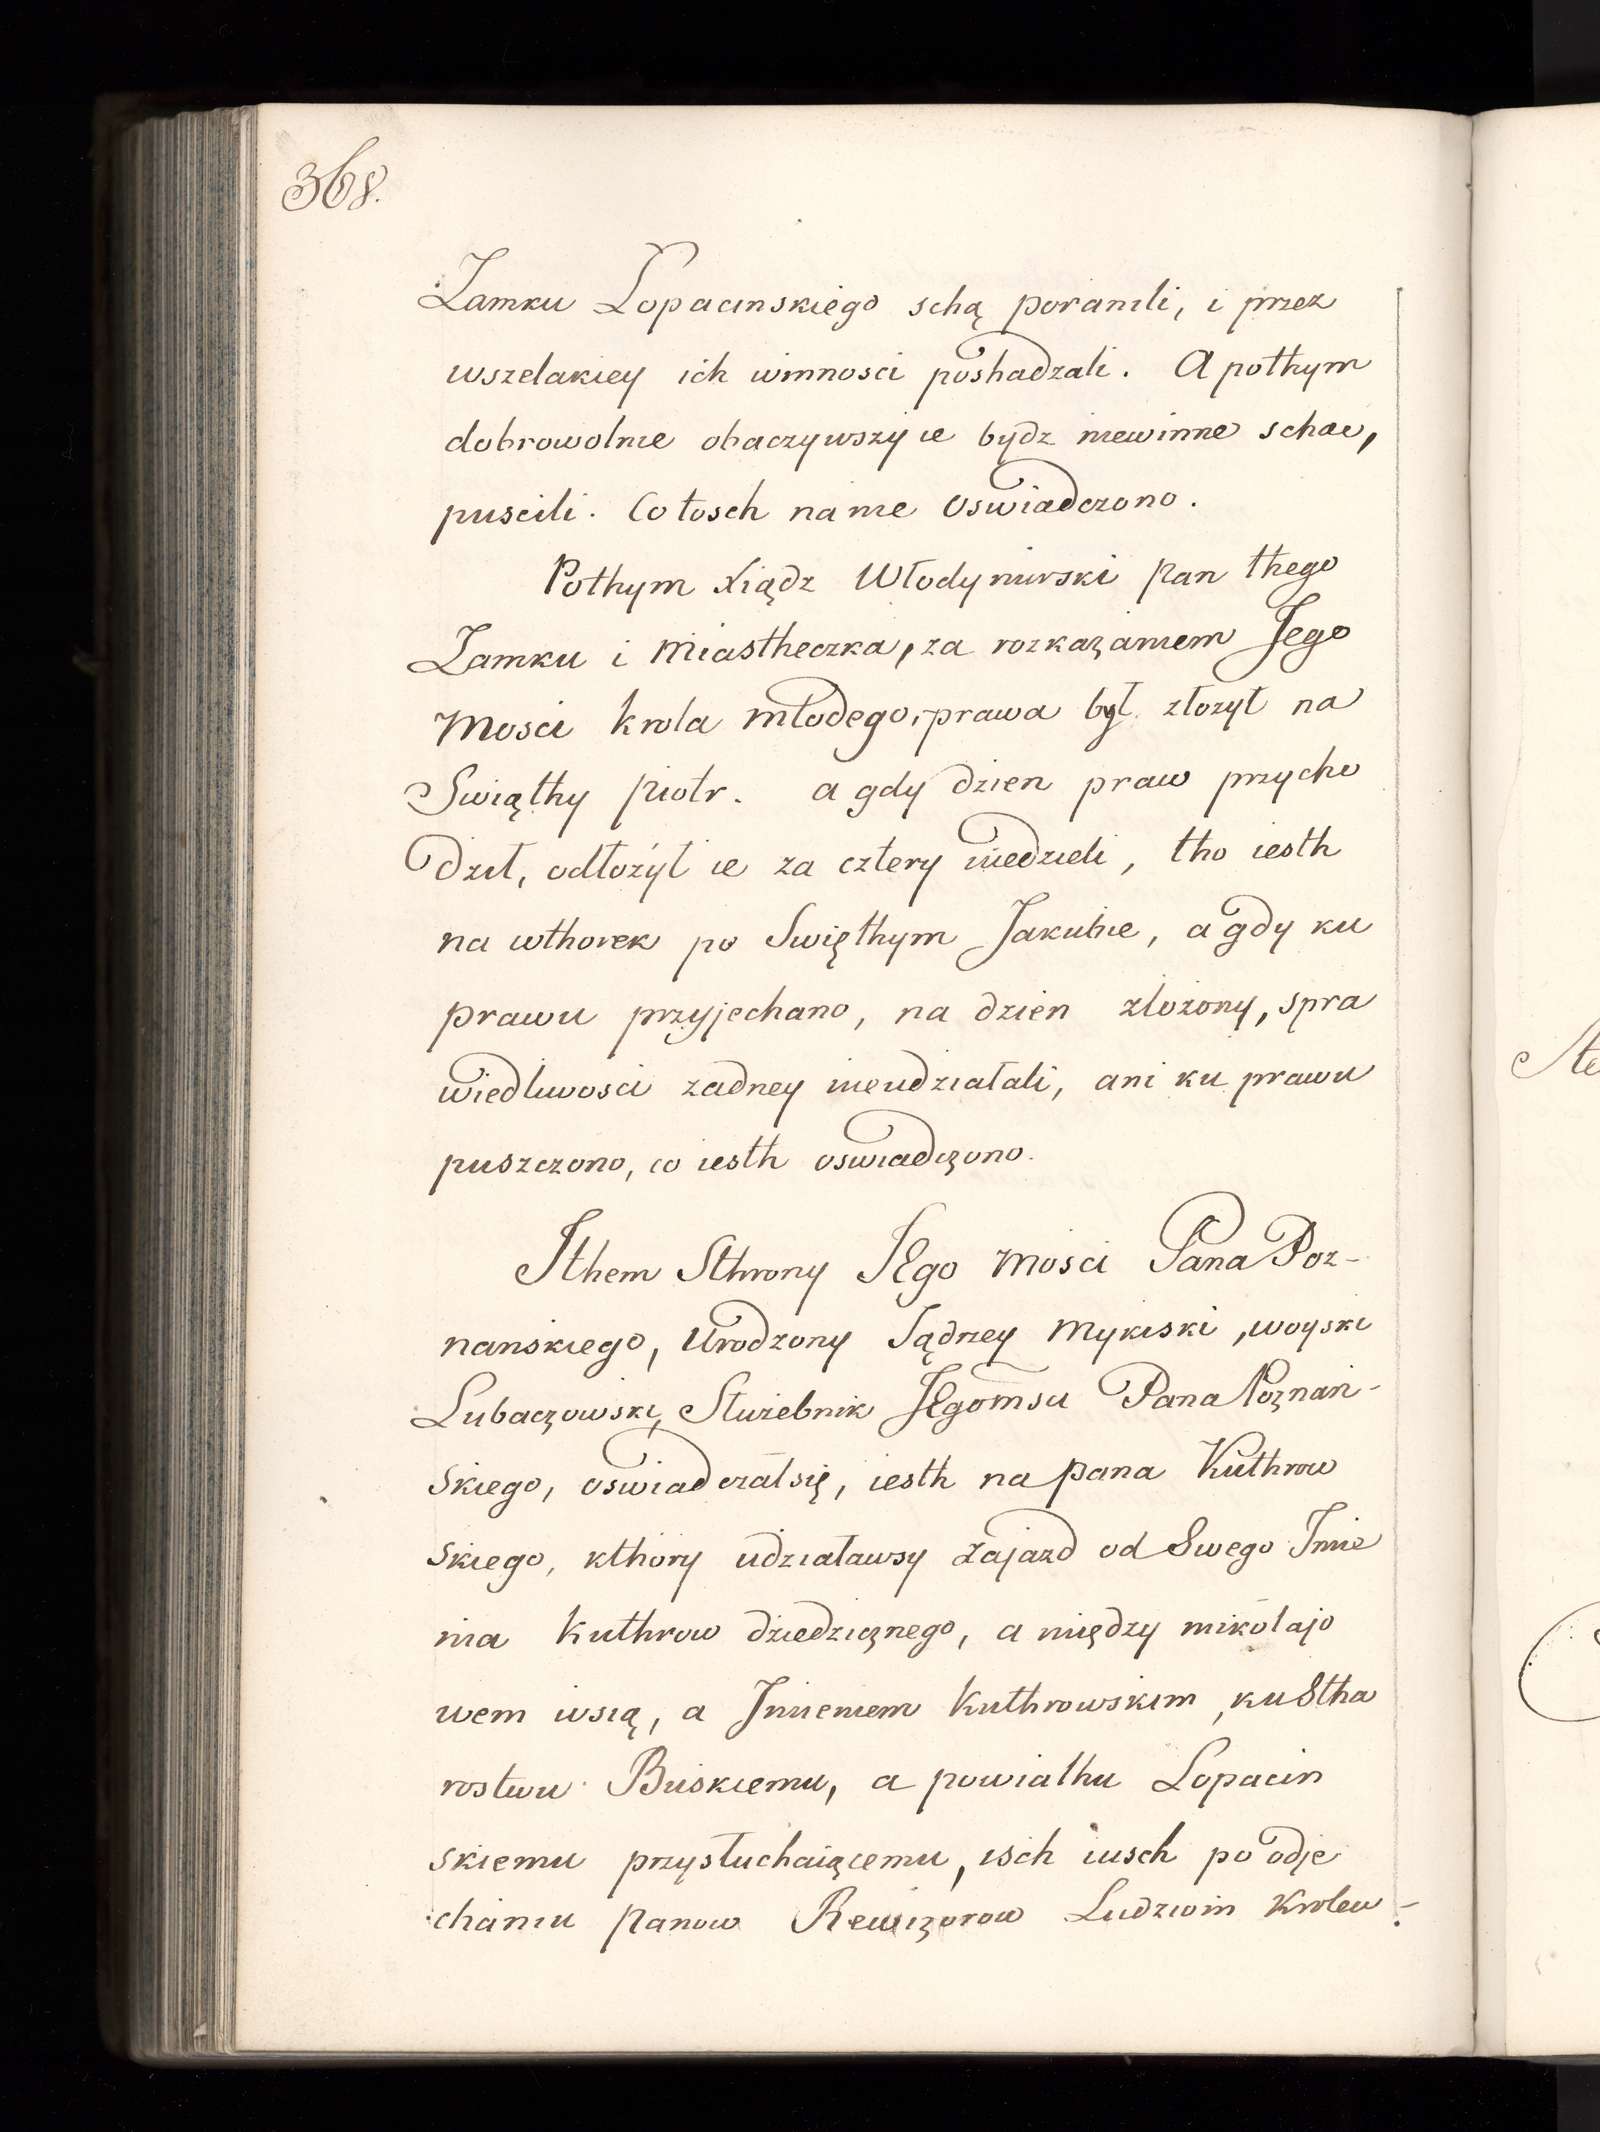 368.
Zamku Lopacinskiego schą poranili, i przez
wszelakiey ich winnosci poshadzali. A pothym
dobrowolnie obaczywszy ie bydz niewinne schae,
puscili. Co tosch na nie oswiadczono.
Pothym Xiądz Włodymirski pan thego
Zamku i Miastheczka, za rozkazaniem Jego
Mosci Krola młodego, prawa był złozył na
Swiąthy Piotr. a gdy dzien praw przycho
dził, odłożył ie za cztery niedzieli, tho iesth
na wthorek po Swięthym Jakubie, a gdy ku
prawu przyjechano, na dzien złożony, spra
wiedliwosci zadney nieudziałali, ani ku prawu
puszczono, co iesth oswiadczono.
Ithem Sthrony JEgo Mosci Pana Poz-
nanskiego, Urodzony Jądrzey Mykiski, woyski
Lubaczowski, Służebnik JEgomsci Pana Poznan-
skiego, oswiadczał się, iesth na pana Kuthrow
skiego, kthory udziaławsy zajazd od Swego Imie
nia Kuthrow dziedzicznego, a między mikołajo
wem wsią, a Imieniem Kuthrowskim, ku Stha
rostwu Buskiemu, a powiathu Lopacin
skiemu przysłuchaiącemu, isch iusch po odje
chaniu panow Rewizorow Ludziom Krolew-
Ste